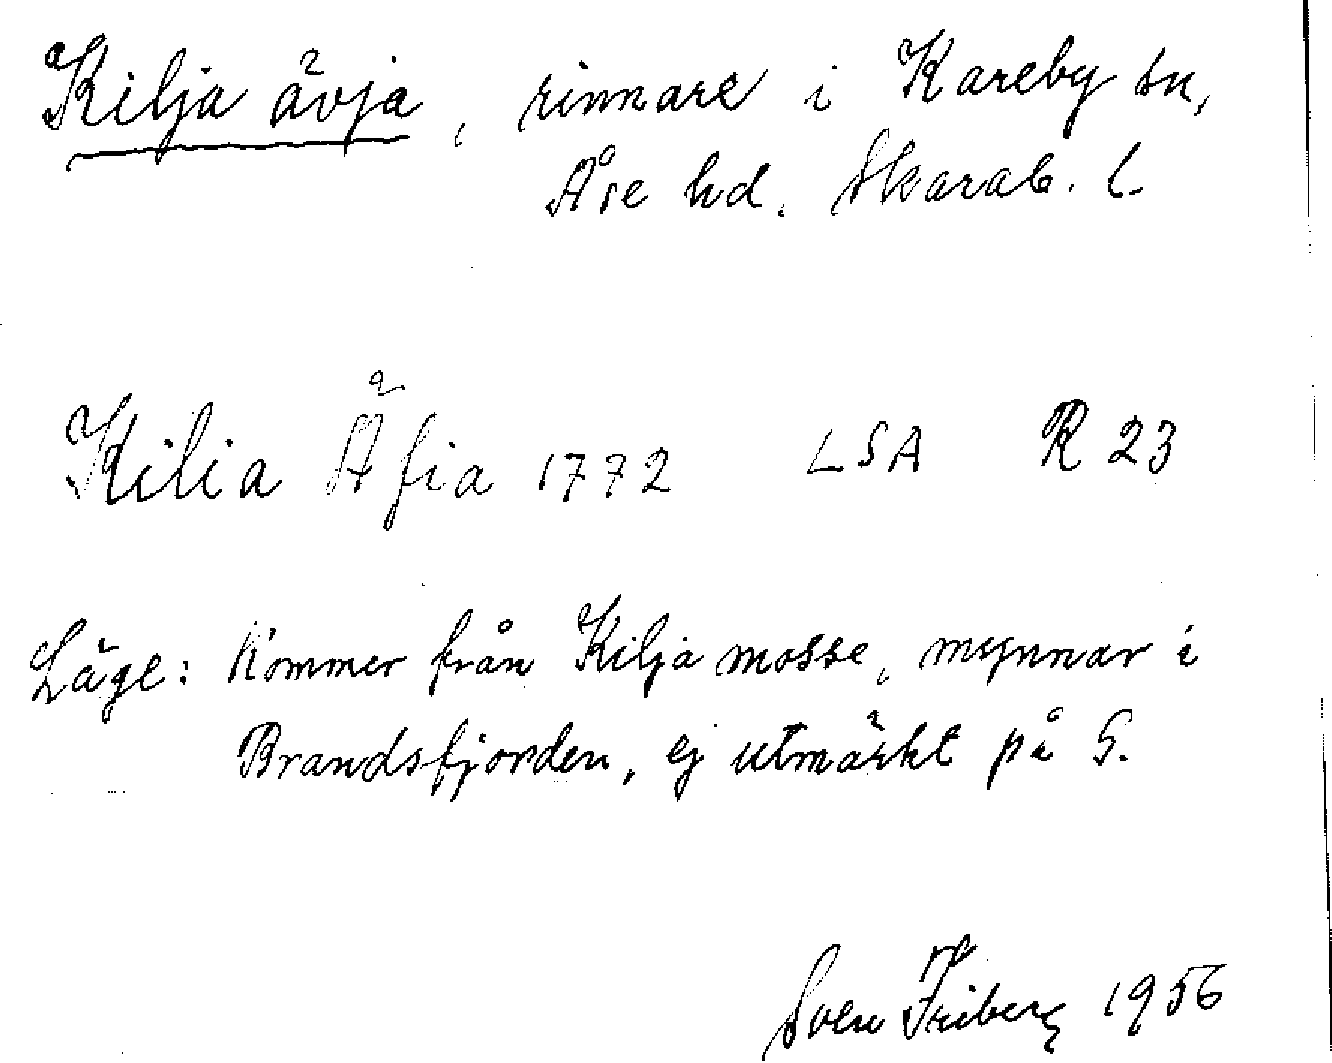 Kilja ävja, rinnare i Kareby sn,
Åse hd. Skarab. l.
Kilia Äfia 1772 LSA R 23
Läge: Kommer från Kilja mosse, mynnar i
Brandsfjorden, ej utmärkt på G.
Sven Friberg 1956